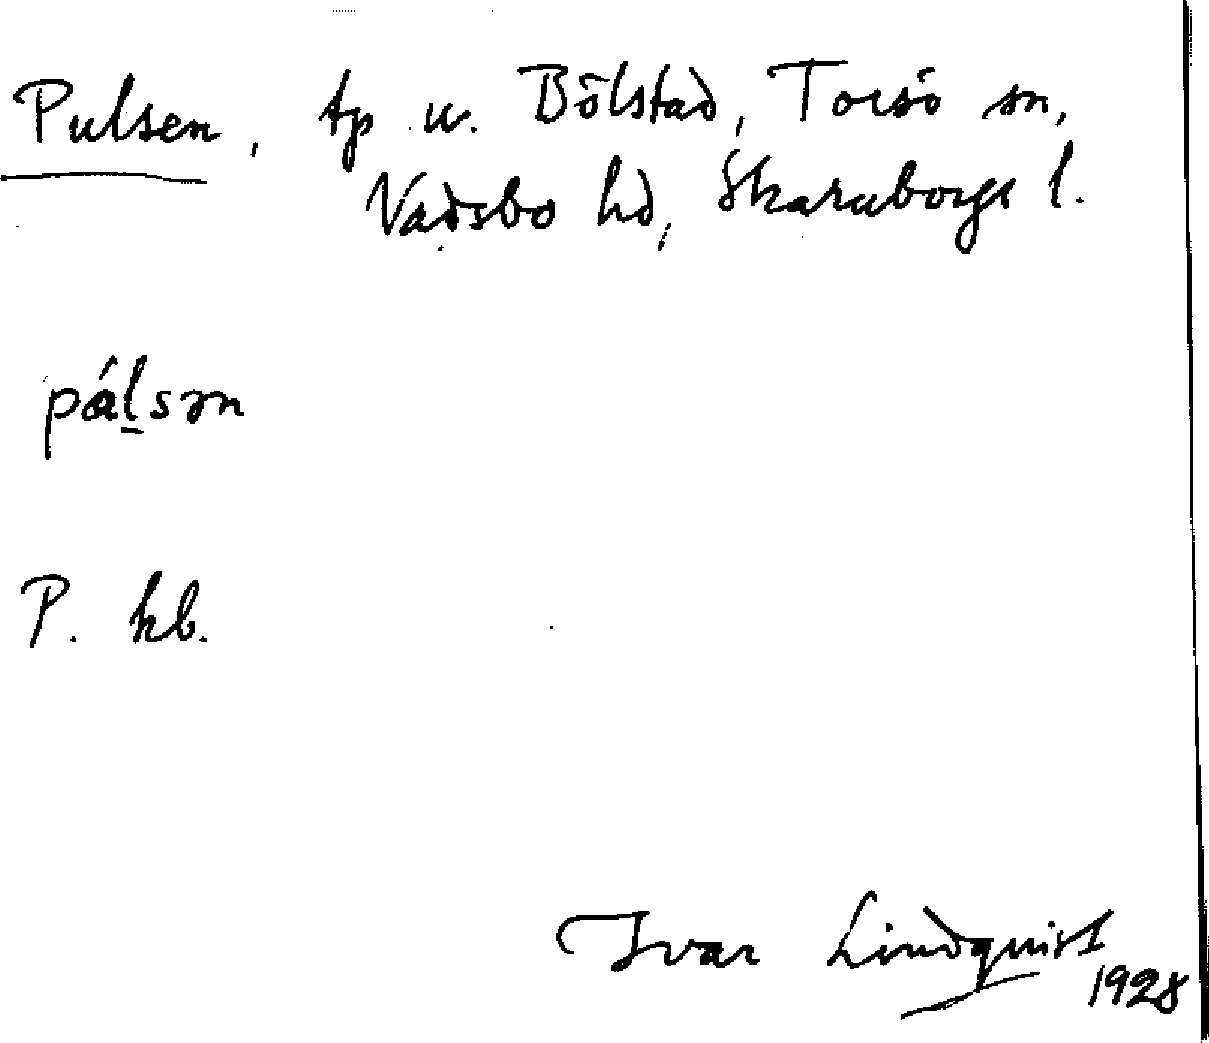 Pulsen, tp u. Bölstad, Torsö sn,
Vadsbo hd, Skaraborgs l.
pál̲sən
P. kb.
Ivar Lindquist
1928